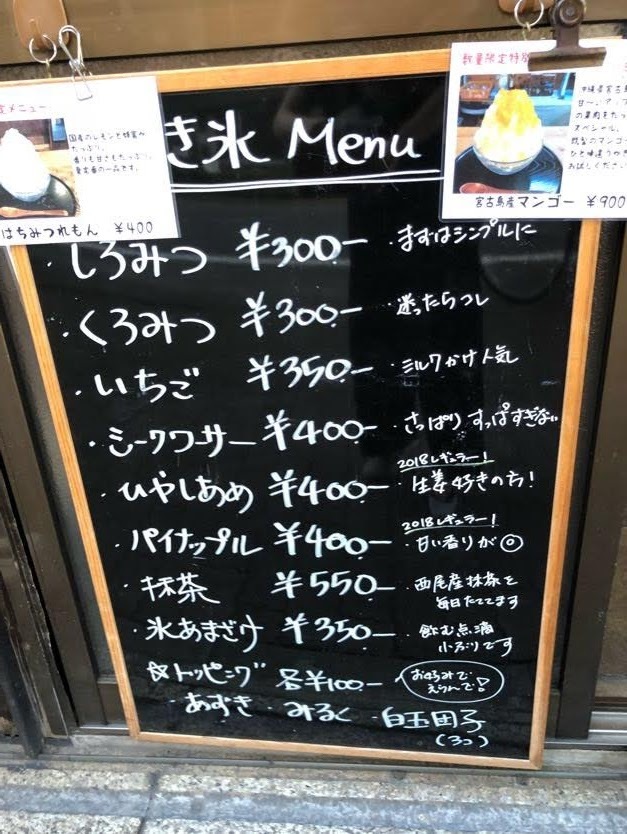 定メニュー
国産のレモンと蜂蜜が
たっぷり。
香りも甘さもたっぷり。
夏定番の一品です。
はちみつれもん ¥400
数量限定特別
沖縄県宮古島
甘〜いアップ
の果肉をたっ
スペシャル。
既製のマンゴー
ひと味違うかき
お試しください
宮古島産マンゴー ¥900
き氷 Menu
しろみつ ¥300- ・まずはシンプルに
・くろみつ ¥300- ・迷ったらコレ
・いちご ¥350- ・ミルクかけ人気
・シークワーサー ¥400- ・さっぱり すっぱすぎない
2018レギュラー!
・ひやしあめ ¥400- ・生姜好きの方!
2018レギュラー!
・パイナップル ¥400- ・甘い香りが◎
・抹茶 ¥550- ・西尾産抹茶を
毎日たててます
・氷あまざけ ¥350- ・飲む点滴
小ぶりです
☆トッピング 各¥100- お好みで
えらんで!
・あずき ・みるく ・白玉団子
(3コ)